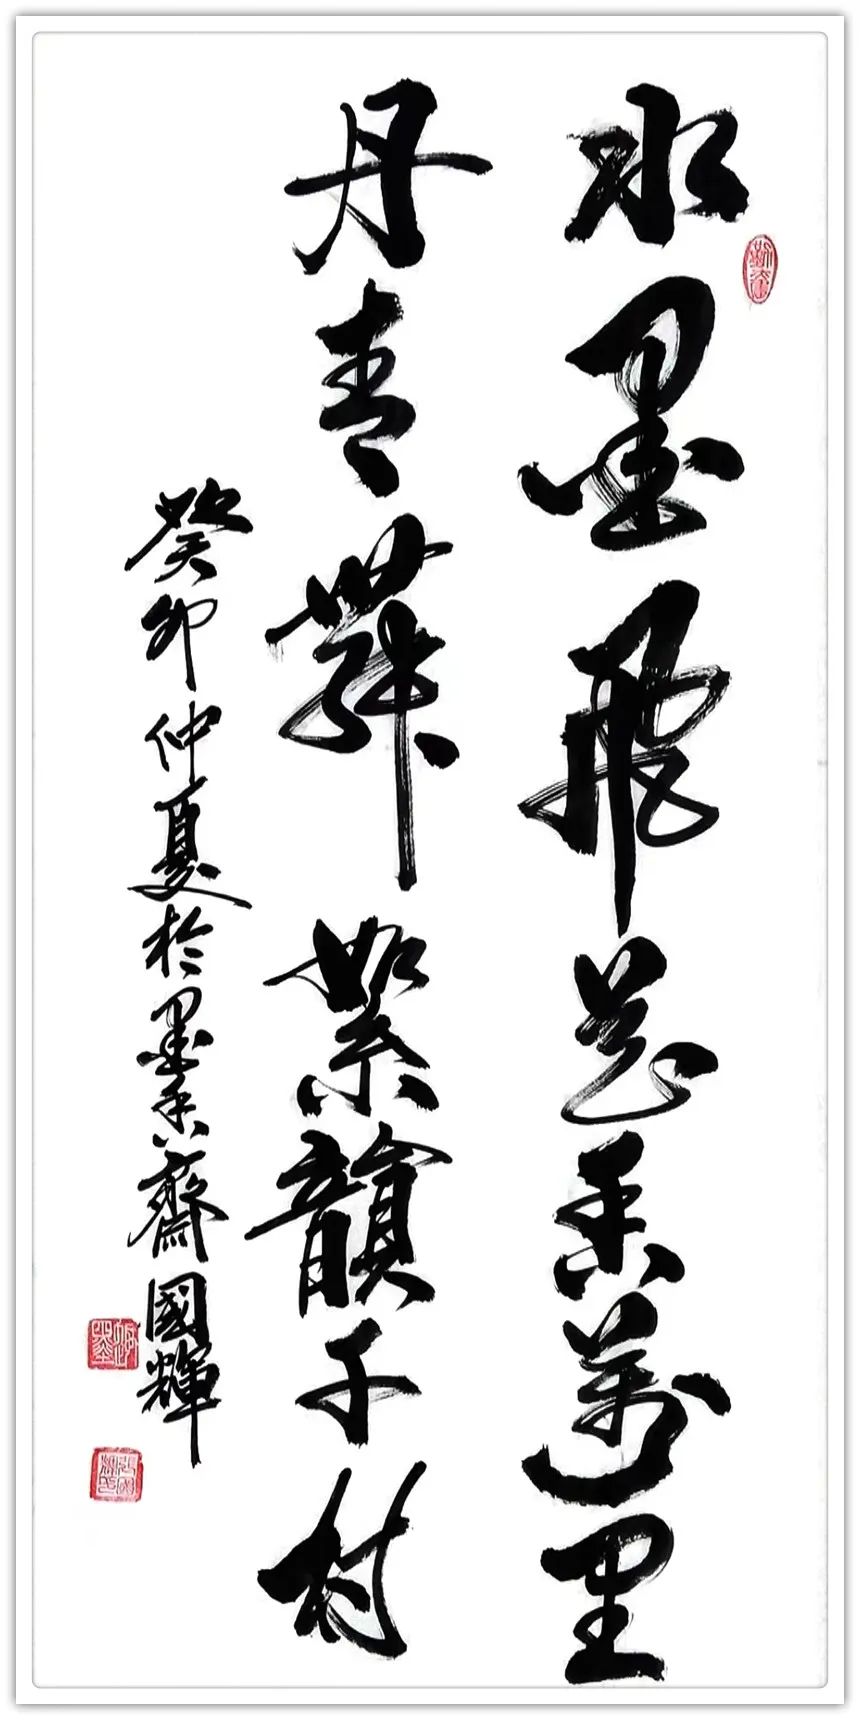 水墨飛花香萬里
丹青舞絮韻千村
癸卯仲夏於墨香齋國輝